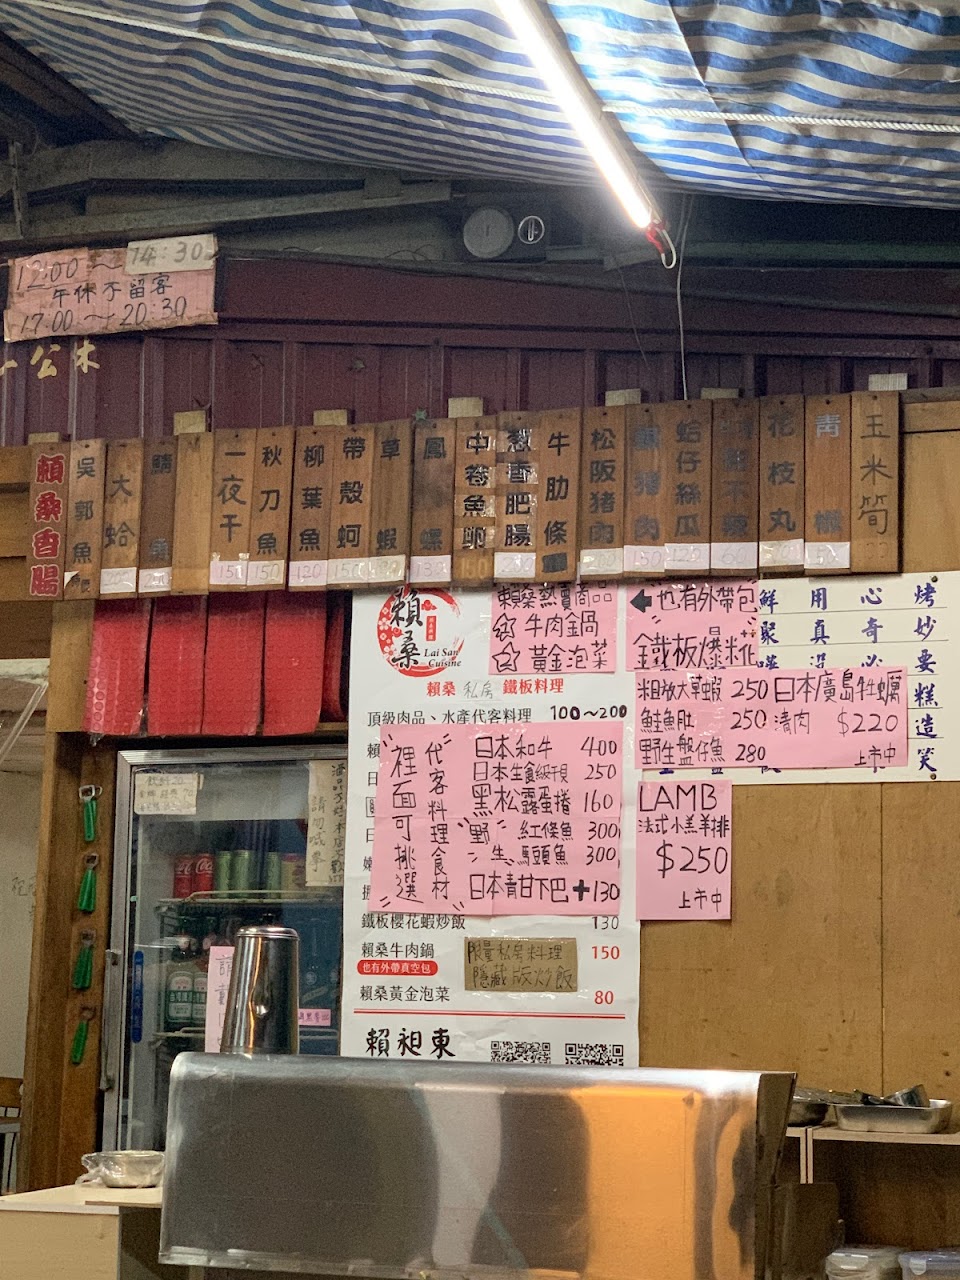 12:00～14:30
午休不留客
17:00～20:30
賴桑香腸
吳郭魚
大蛤
鯖魚
一夜干 150
秋刀魚 150
柳葉魚 130
帶殼蚵 150
草蝦
鳳螺 130
中卷魚卵 150
蔥香肥腸 200
牛肋條
松阪豬肉 200
鹹豬肉 150
蛤仔絲瓜 120
花枝丸
青椒 50
玉米筍
賴桑
Lai San
Cuisine
賴桑熱賣商品
☆牛肉鍋
☆黃金泡菜
←也有外帶包
鐵板爆炒
賴桑 私房 鐵板料理
頂級肉品、水產代客料理 100～200
代客料理食材
裡面可挑選
日本和牛 400
日本生食級干貝 250
黑松露蛋捲 160
野生 紅條魚 300
馬頭魚 300
日本青甘下巴+130
鐵板櫻花蝦炒飯 130
賴桑牛肉鍋 150
也有外帶真空包
限量私房料理
隱藏版炒飯
賴桑黃金泡菜 80
賴昶東
粗放大草蝦 250
鮭魚肚 250
野生盤仔魚 280
日本廣島牡蠣
清肉 $220
上市中
LAMB
法式小羔羊排
$250
上市中
烤妙要糕造笑
心奇必
用真
鮮聚
請勿喊拳